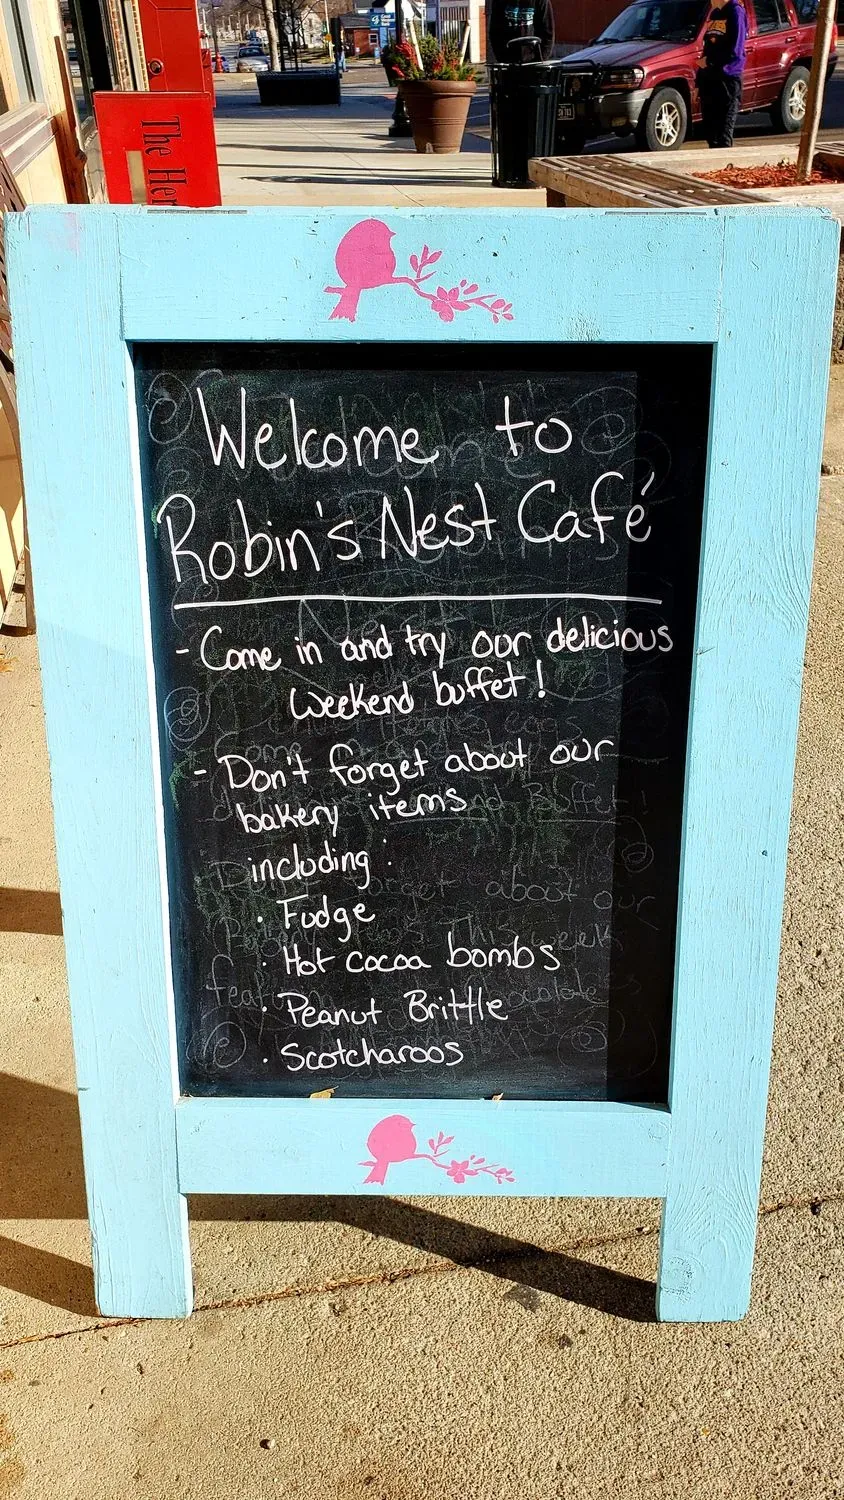 The Her
Welcome to
Robin's Nest Café
- Come in and try our delicious
weekend buffet!
- Don't forget about our
bakery items
including:
· Fudge
· Hot cocoa bombs
· Peanut Brittle
· Scotcharoos